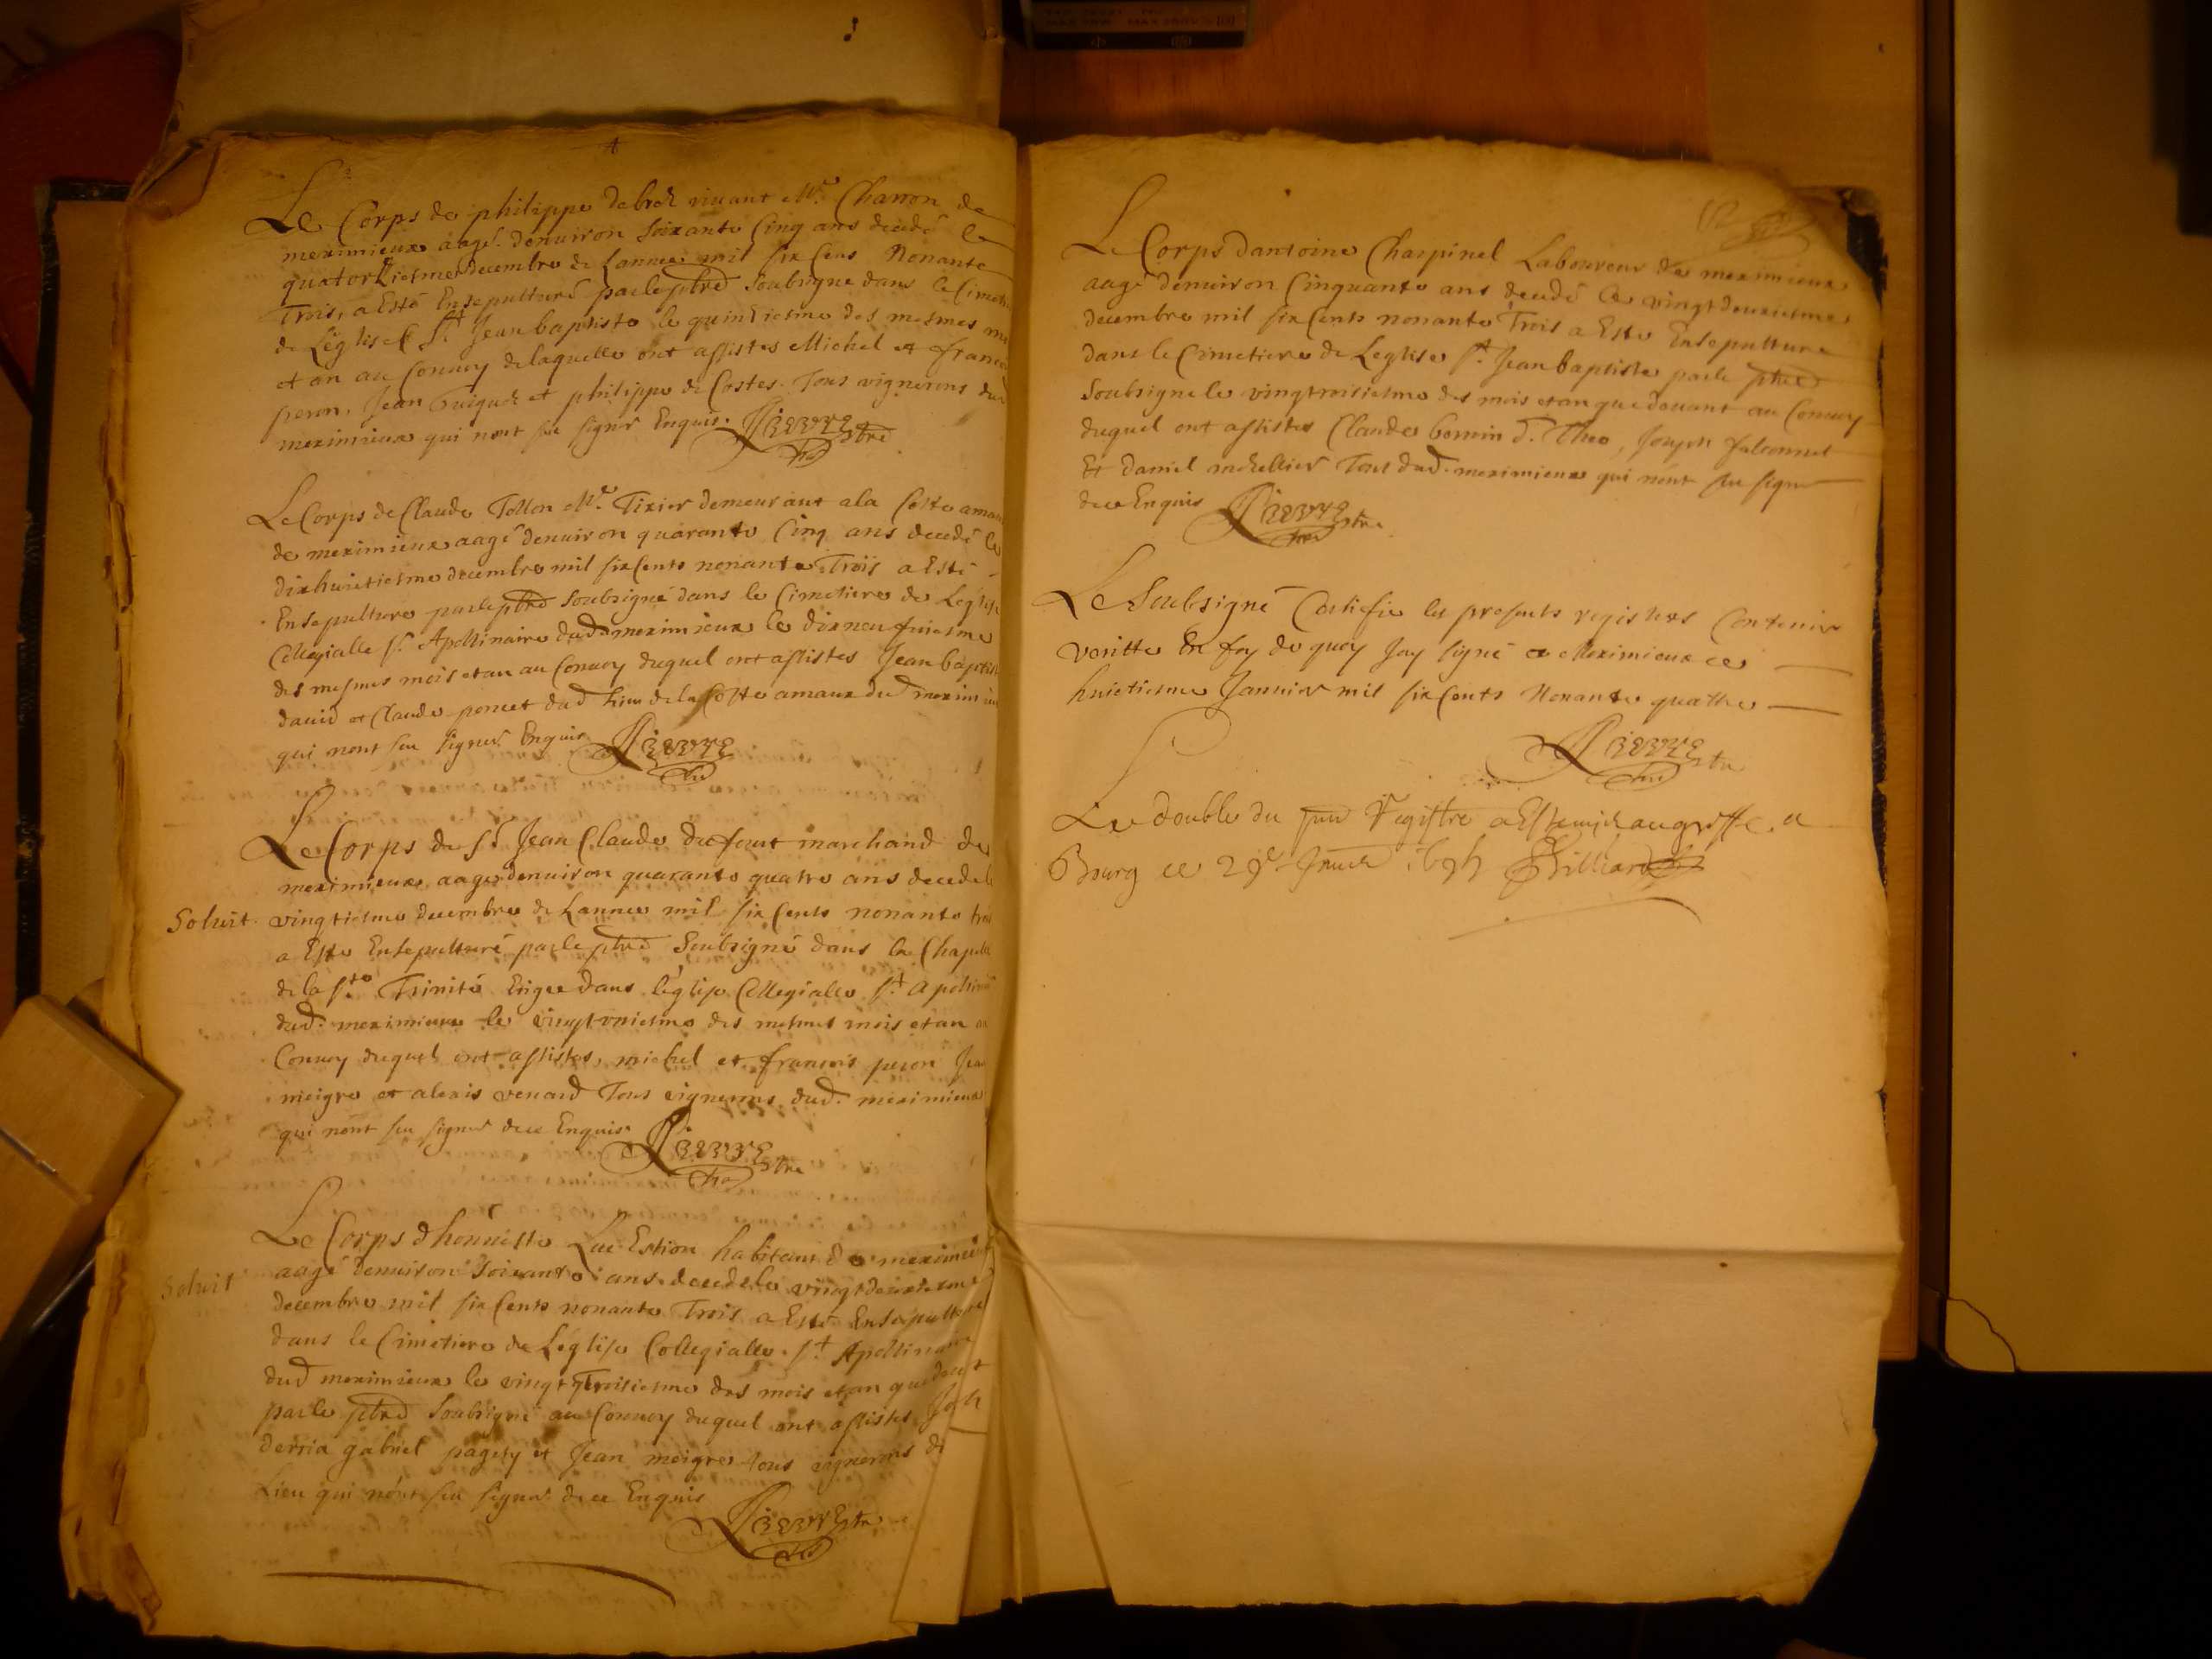 Le Corps de philippe debrez vivant Mre. Charron de
meximieux aagé denuiron soixante Cinq ans decedé le
quatorziesme decembre de Lannee mil six Cens Nonante
Trois, a Esté Ensepulturé par le pbre soubsigné dans le Cimetie
de Leglise St Jean baptiste le quinziesme des mesmes mois
et an au Convoy de laquelle ont assistes Michel et francois
peron, Jean et philippe de Costes. Tous vignerons dud
meximieux qui nont sceu signer Enquis. Pierre pbre
Le Corps de Claude Tollon Mre. Tixier demeurant a la Coste amau
de meximieux aagé denuiron quarante Cinq ans decedé le
dixhuictiesme decembre mil six Cents nonante Trois a Esté
Ensepulture par le pbre soubsigné dans le Cimetiere de Leglise
Collegialle St. Apollinaire dud. meximieux le dixneufuiesme
des mesmes mois et an au Convoy duquel ont assistes Jean baptiste
dauid et Claude poncet dud Lieu de la Coste amaux dud meximieu
qui nont sceu signer Enquis Pierre
Le Corps du Sr. Jean Claude dufour marchand de
meximieux aagé denuiron quarante quatre ans decedé le
Soluit. vingtiesme decembre de Lannee mil six Cents nonante trois
a Este Ensepulturé par le pbre Soubsigné dans la Chapelle
de la Ste Trinité Erigee dans léglise Collegialle St. Apollinai
dud. meximieux le vingt vniesme des mesmes mois et an au
Convoy duquel ont assistes, michel et francois peron Jean
meigre et alexis venard Tous vignerons dud. meximieux
qui nont sceu signer de ce Enquis. Pierre pbre
Le Corps dhonneste Luc Estion habitant de meximieux
Soluit aagé denuiron soixante ans decedé le vingtdeuxiesme
decembre mil six Cents nonante Trois a Esté Ensepulturé
dans le Cimetiere de Léglise Collegialle St Apollinaire
dud meximieux le vingt Troisiesme des mois et an que deut
par le pbre soubsigné au Convoy duquel ont assistes
derria gabriel pagery et Jean meigre tous vignerons du
Lieu qui nont sceu signer de ce Enquis
Pierre pbre
Le Corps dantoine Charpinel Laboureur de meximieux
aagé denuiron Cinquante ans decedé le vingtdeuxiesme
decembre mil six Cents nonante Trois a Este Ensepulture
dans le Cimetiere de Leglise St. Jean baptiste par le pbre
soubsigne le vingttroisiesme des mois et an que deuant au Convoy
duquel ont assistes Claude bonnin d. Joseph falconnet
Et daniel Tous dud. meximieux qui nont sceu signer
de ce Enquis Pierre pbre
Le Soubsigné Certifie les presents registres Contenir
veritte En foy de quoy Jay signé a Meximieux ce
huictiesme Januier mil six Cents Nonante quattre
Pierre pbre
Le double du pnt Registre a Esté remis au greffe a
Bourg ce 29e Januier 1694 Billiard